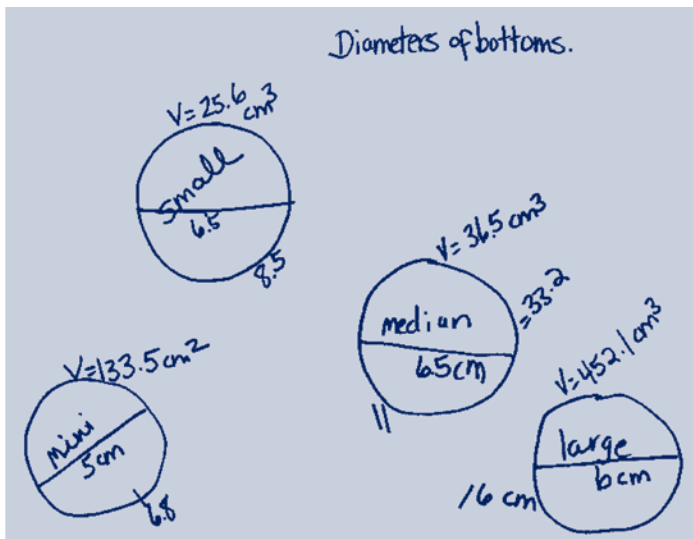 Diameters of bottoms.
V=25.6 cm³
small
6.5
8.5
V=36.5 cm³
=33.2
median
6.5cm
11
V=133.5cm²
mini
5cm
6.8
V=452.1cm³
large
6cm
16 cm